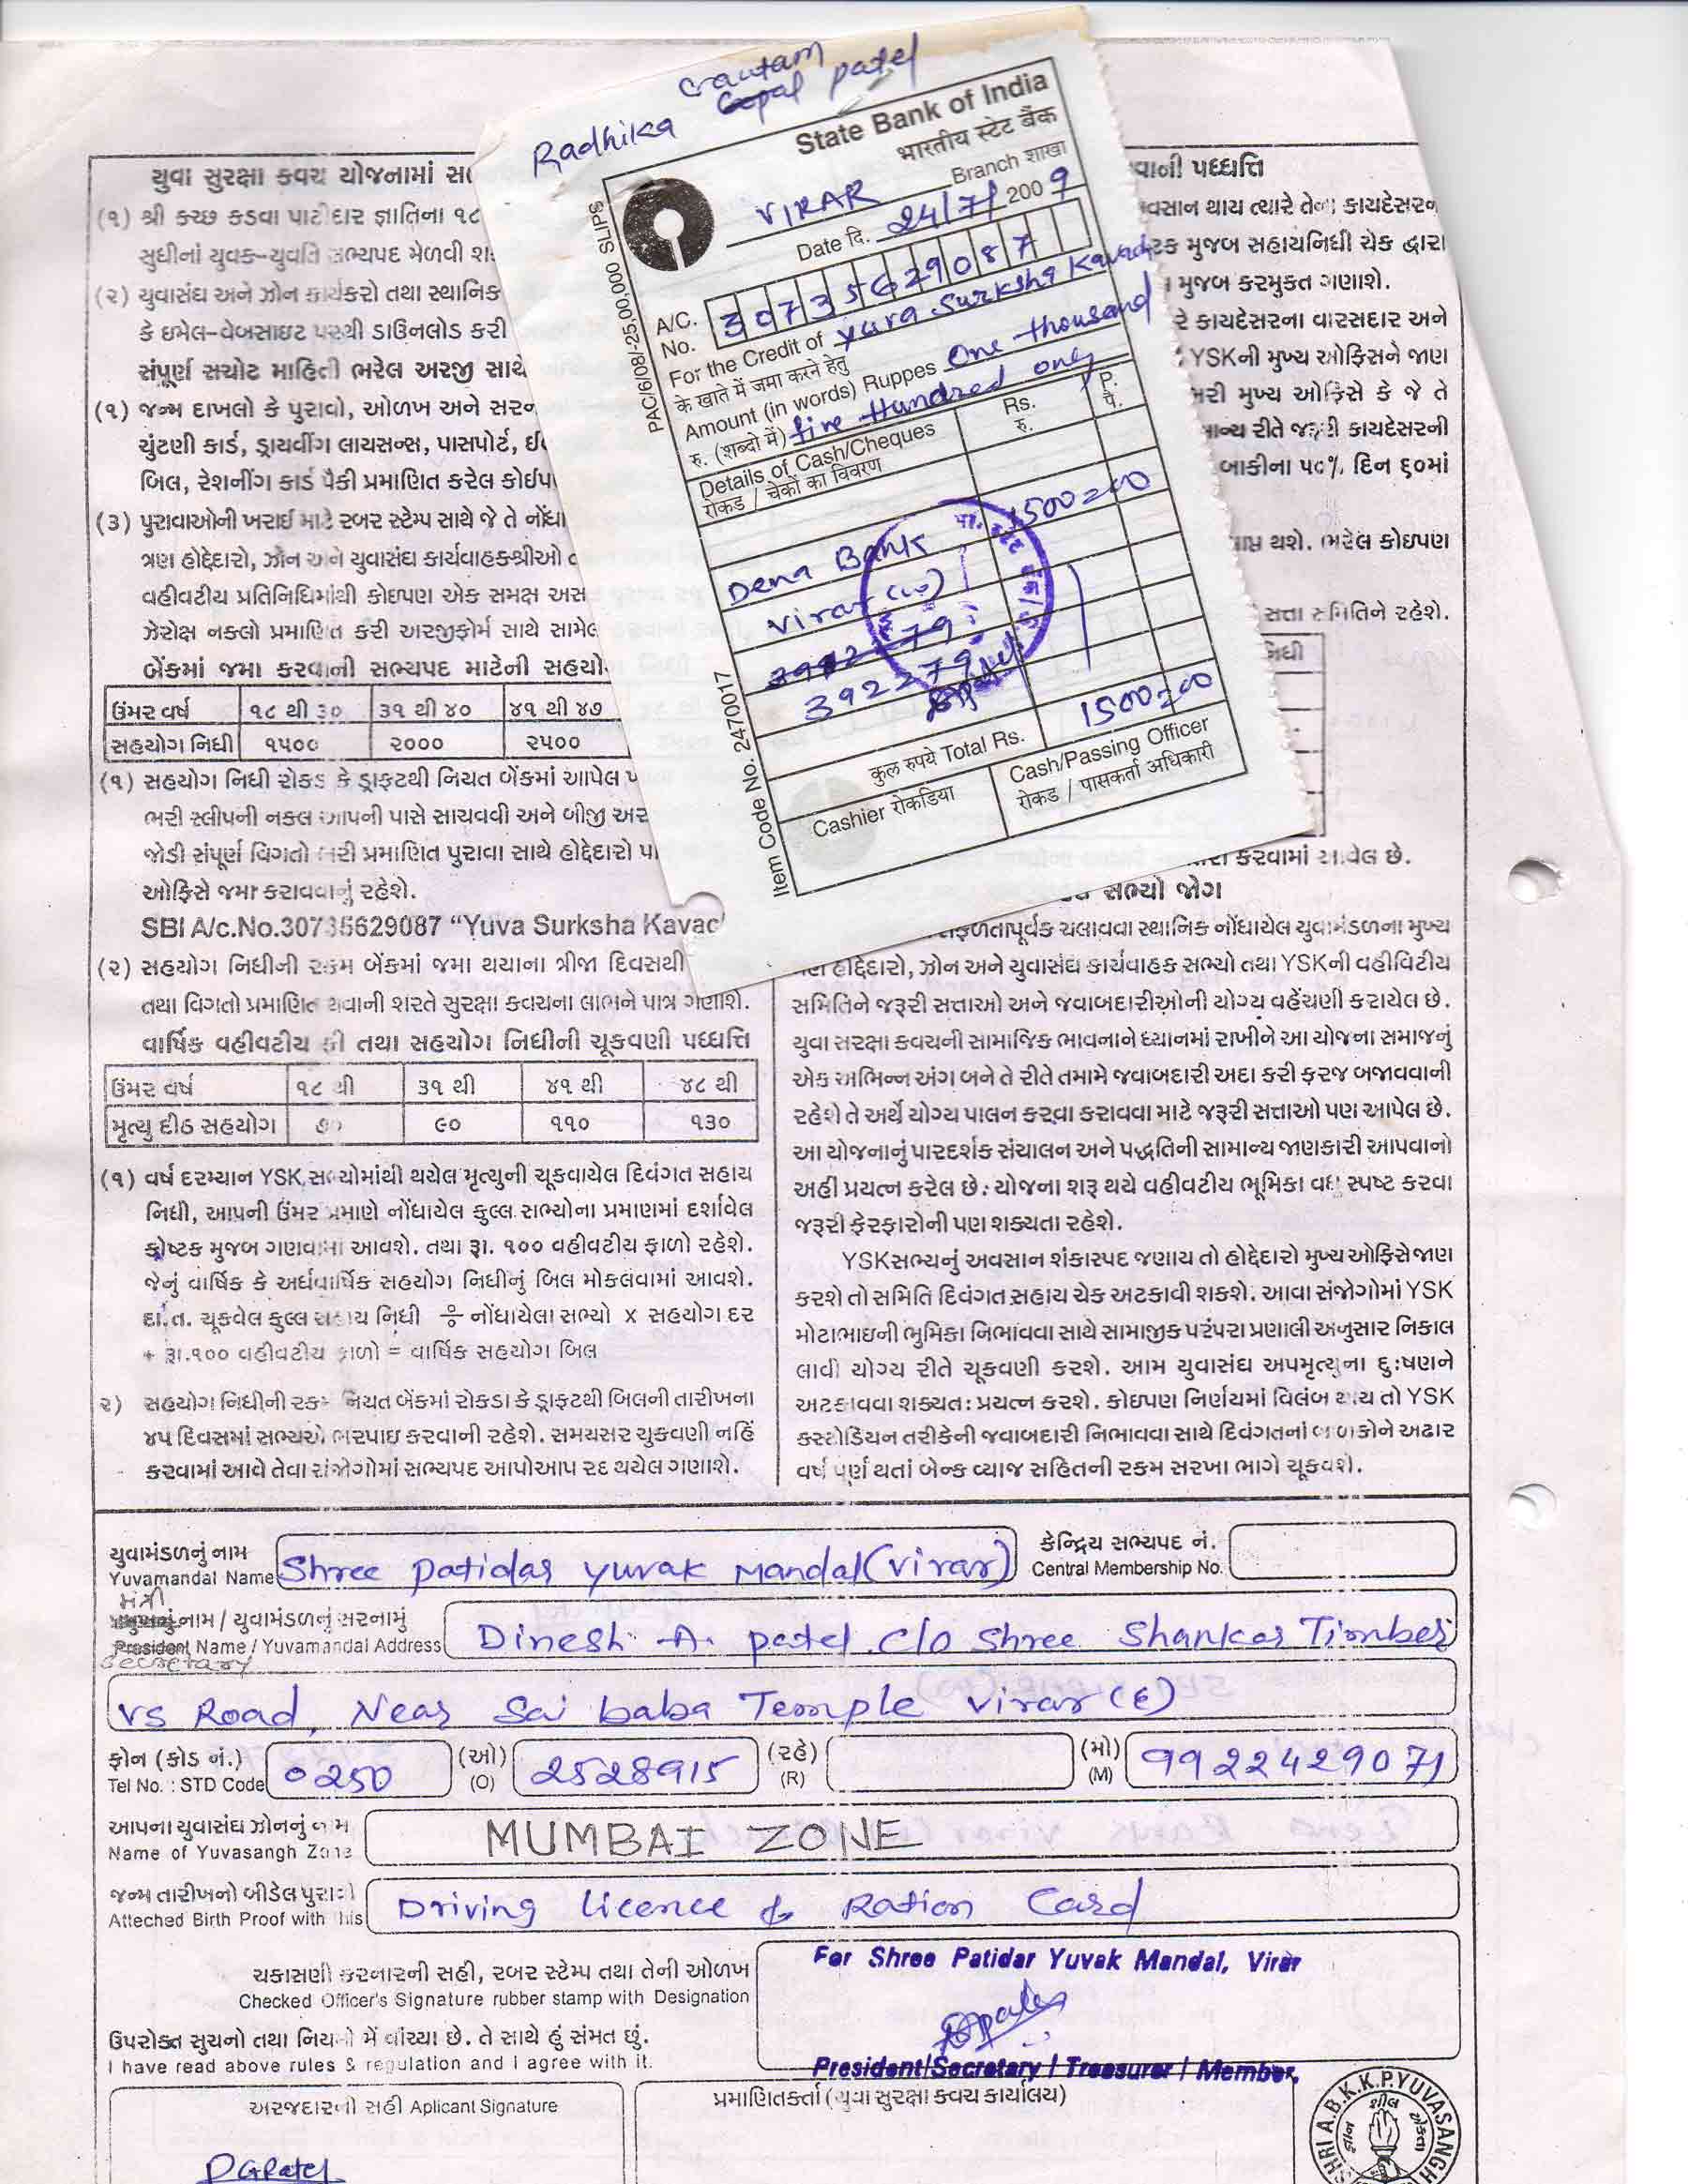 Gautam
Radhika Gopal patel
State Bank of India
भारतीय स्टेट बैंक
VIRAR Branch शाखा
Date दि. 24/7/ 2009
A/C. No. 30735629087
For the Credit of yuva Surksha Kavach
के खाते में जमा करने हेतु
Amount (in words) Ruppes One thousand
रु. (शब्दो में) five Hundred only
Details of Cash/Cheques Rs. P.
रोकड / चेकों का विवरण रु. पै.
1500=00
Dena Bank
Virar (w)
392279
1500=00
कुल रुपये Total Rs.
Cashier रोकडिया
Cash/Passing Officer
रोकड / पासकर्ता अधिकारी
PAC/6/08/-25,00,000 SLIPS
Item Code No. 2470017
યુવા સુરક્ષા કવચ યોજનામાં
(૧) શ્રી કચ્છ કડવા પાટીદાર જ્ઞાતિના ૧૮
સુધીનાં યુવક-યુવતિ સભ્યપદ મેળવી
(૨) યુવાસંઘ અને ઝોન કાર્યકરો તથા સ્થાનિક
કે ઇમેલ-વેબસાઇટ પરથી ડાઉનલોડ કરી
સંપૂર્ણ સચોટ માહિતી ભરેલ અરજી સાથે
(૧) જન્મ દાખલો કે પુરાવો, ઓળખ અને
ચુંટણી કાર્ડ, ડ્રાયવીંગ લાયસન્સ, પાસપોર્ટ,
બિલ, રેશનીંગ કાર્ડ પૈકી પ્રમાણિત કરેલ
(૩) પુરાવાઓની ખરાઈ માટે રબર સ્ટેમ્પ સાથે જે તે
ત્રણ હોદ્દેદારો, ઝોન અને યુવાસંઘ કાર્યવાહકશ્રીઓ
વહીવટીય પ્રતિનિધિમાંથી કોઇપણ એક સમક્ષ
ઝેરોક્ષ નક્લો પ્રમાણિત કરી અરજીફોર્મ સાથે
બેંકમાં જમા કરવાની સભ્યપદ માટેની
ઉંમર વર્ષ ૧૮ થી ૩૦ ૩૧ થી ૪૦ ૪૧ થી ૪૭
સહયોગ નિધી ૧૫૦૦ ૨૦૦૦ ૨૫૦૦
(૧) સહયોગ નિધી રોકડ કે ડ્રાફટથી નિયત બેંકમાં આપેલ
ભરી સ્લીપની નકલ આપની પાસે સાચવવી અને બીજી
જોડી સંપૂર્ણ વિગતો ભરી પ્રમાણિત પુરાવા સાથે હોદ્દેદારો
ઓફિસે જમા કરાવવાનું રહેશે.
SBI A/c.No.30735629087 “Yuva Surksha Kavac
(૨) સહયોગ નિધીની રકમ બેંકમાં જમા થયાના ત્રીજા દિવસથી
તથા વિગતો પ્રમાણિત થવાની શરતે સુરક્ષા કવચના લાભને પાત્ર ગણાશે.
વાર્ષિક વહીવટીય ફી તથા સહયોગ નિધીની ચૂકવણી પધ્ધત્તિ
ઉંમર વર્ષ ૧૮ થી ૩૧ થી ૪૧ થી ૪૮ થી
મૃત્યુ દીઠ સહયોગ ૭૦ ૯૦ ૧૧૦ ૧૩૦
(૧) વર્ષ દરમ્યાન YSK સભ્યોમાંથી થયેલ મૃત્યુની ચૂકવાયેલ દિવંગત સહાય
નિધી, આપની ઉંમર પ્રમાણે નોંધાયેલ કુલ્લ સભ્યોના પ્રમાણમાં દર્શાવેલ
કોષ્ટક મુજબ ગણવામાં આવશે. તથા રૂા. ૧૦૦ વહીવટીય ફાળો રહેશે.
જેનું વાર્ષિક કે અર્ધવાર્ષિક સહયોગ નિધીનું બિલ મોકલવામાં આવશે.
દા.ત. ચૂકવેલ કુલ્લ સહાય નિધી ÷ નોંધાયેલા સભ્યો x સહયોગ દર
+ રૂા.૧૦૦ વહીવટીય ફાળો = વાર્ષિક સહયોગ બિલ
૨) સહયોગ નિધીની રકમ નિયત બેંકમાં રોકડા કે ડ્રાફટથી બિલની તારીખના
૪૫ દિવસમાં સભ્યએ ભરપાઇ કરવાની રહેશે. સમયસર ચુકવણી નહિં
કરવામાં આવે તેવા સંજોગોમાં સભ્યપદ આપોઆપ રદ થયેલ ગણાશે.
પધ્ધત્તિ
અવસાન થાય ત્યારે તેના કાયદેસરના
મુજબ સહાયનિધી ચેક દ્વારા
મુજબ કરમુકત ગણાશે.
કાયદેસરના વારસદાર અને
YSKની મુખ્ય ઓફિસને જાણ
મુખ્ય ઓફિસે કે જે તે
રીતે જરૂરી કાયદેસરની
બાકીના ૫૦% દિન ૬૦માં
થશે. ભરેલ કોઇપણ
સત્તા સમિતિને રહેશે.
કરવામાં આવેલ છે.
સભ્યો જોગ
ચલાવવા સ્થાનિક નોંધાયેલ યુવામંડળના મુખ્ય
હોદ્દેદારો, ઝોન અને યુવાસંઘ કાર્યવાહક સભ્યો તથા YSKની વહીવિટીય
સમિતિને જરૂરી સત્તાઓ અને જવાબદારીઓની યોગ્ય વહેંચણી કરાયેલ છે.
યુવા સરક્ષા કવચની સામાજિક ભાવનાને ધ્યાનમાં રાખીને આ યોજના સમાજનું
એક અભિન્ન અંગ બને તે રીતે તમામે જવાબદારી અદા કરી ફરજ બજાવવાની
રહેશે તે અર્થે યોગ્ય પાલન કરવા કરાવવા માટે જરૂરી સત્તાઓ પણ આપેલ છે.
આ યોજનાનું પારદર્શક સંચાલન અને પદ્ધતિની સામાન્ય જાણકારી આપવાનો
અહીં પ્રયત્ન કરેલ છે. યોજના શરૂ થયે વહીવટીય ભૂમિકા વધુ સ્પષ્ટ કરવા
જરૂરી ફેરફારોની પણ શક્યતા રહેશે.
YSK સભ્યનું અવસાન શંકાસ્પદ જણાય તો હોદ્દેદારો મુખ્ય ઓફિસે જાણ
કરશે તો સમિતિ દિવંગત સહાય ચેક અટકાવી શકશે. આવા સંજોગોમાં YSK
મોટાભાઇની ભુમિકા નિભાવવા સાથે સામાજીક પરંપરા પ્રણાલી અનુસાર નિકાલ
લાવી યોગ્ય રીતે ચૂકવણી કરશે. આમ યુવાસંઘ અપમૃત્યુના દુઃષણને
અટકાવવા શક્યતઃ પ્રયત્ન કરશે. કોઇપણ નિર્ણયમાં વિલંબ થાય તો YSK
કસ્ટોડિયન તરીકેની જવાબદારી નિભાવવા સાથે દિવંગતનાં બાળકોને અઢાર
વર્ષ પુર્ણ થતાં બેન્ક વ્યાજ સહિતની રકમ સરખા ભાગે ચૂકવશે.
યુવામંડળનું નામ
Yuvamandal Name Shree Patidar Yuvak Mandal (Virar)
કેન્દ્રિય સભ્યપદ નં.
Central Membership No.
મંત્રી
નામ / યુવામંડળનું સરનામું
President Name / Yuvamandal Address Dinesh A. patel C/o Shree Shankar Timber
Secretary
VS Road, Near Sai baba Temple Virar (E)
ફોન (કોડ નં.) (ઓ) (રહે) (મો)
Tel No. : STD Code 0250 (O) 2528915 (R) (M) 9922429071
આપના યુવાસંઘ ઝોનનું નામ
Name of Yuvasangh Zone MUMBAI ZONE
જન્મ તારીખનો બીડેલ પુરાવો
Atteched Birth Proof with this Driving licence & Ration Card
ચકાસણી કરનારની સહી, રબર સ્ટેમ્પ તથા તેની ઓળખ
Checked Officer's Signature rubber stamp with Designation
For Shree Patidar Yuvak Mandal, Virar
President/Secretary / Treasurer / Member.
ઉપરોક્ત સુચનો તથા નિયમો મેં વાંચ્યા છે. તે સાથે હું સંમત છું.
I have read above rules & regulation and I agree with it.
અરજદારની સહી Aplicant Signature
પ્રમાણિતકર્તા (યુવા સુરક્ષા કવચ કાર્યાલય)
DGPatel
SHRI A.B.K.K.P.YUVASANGH